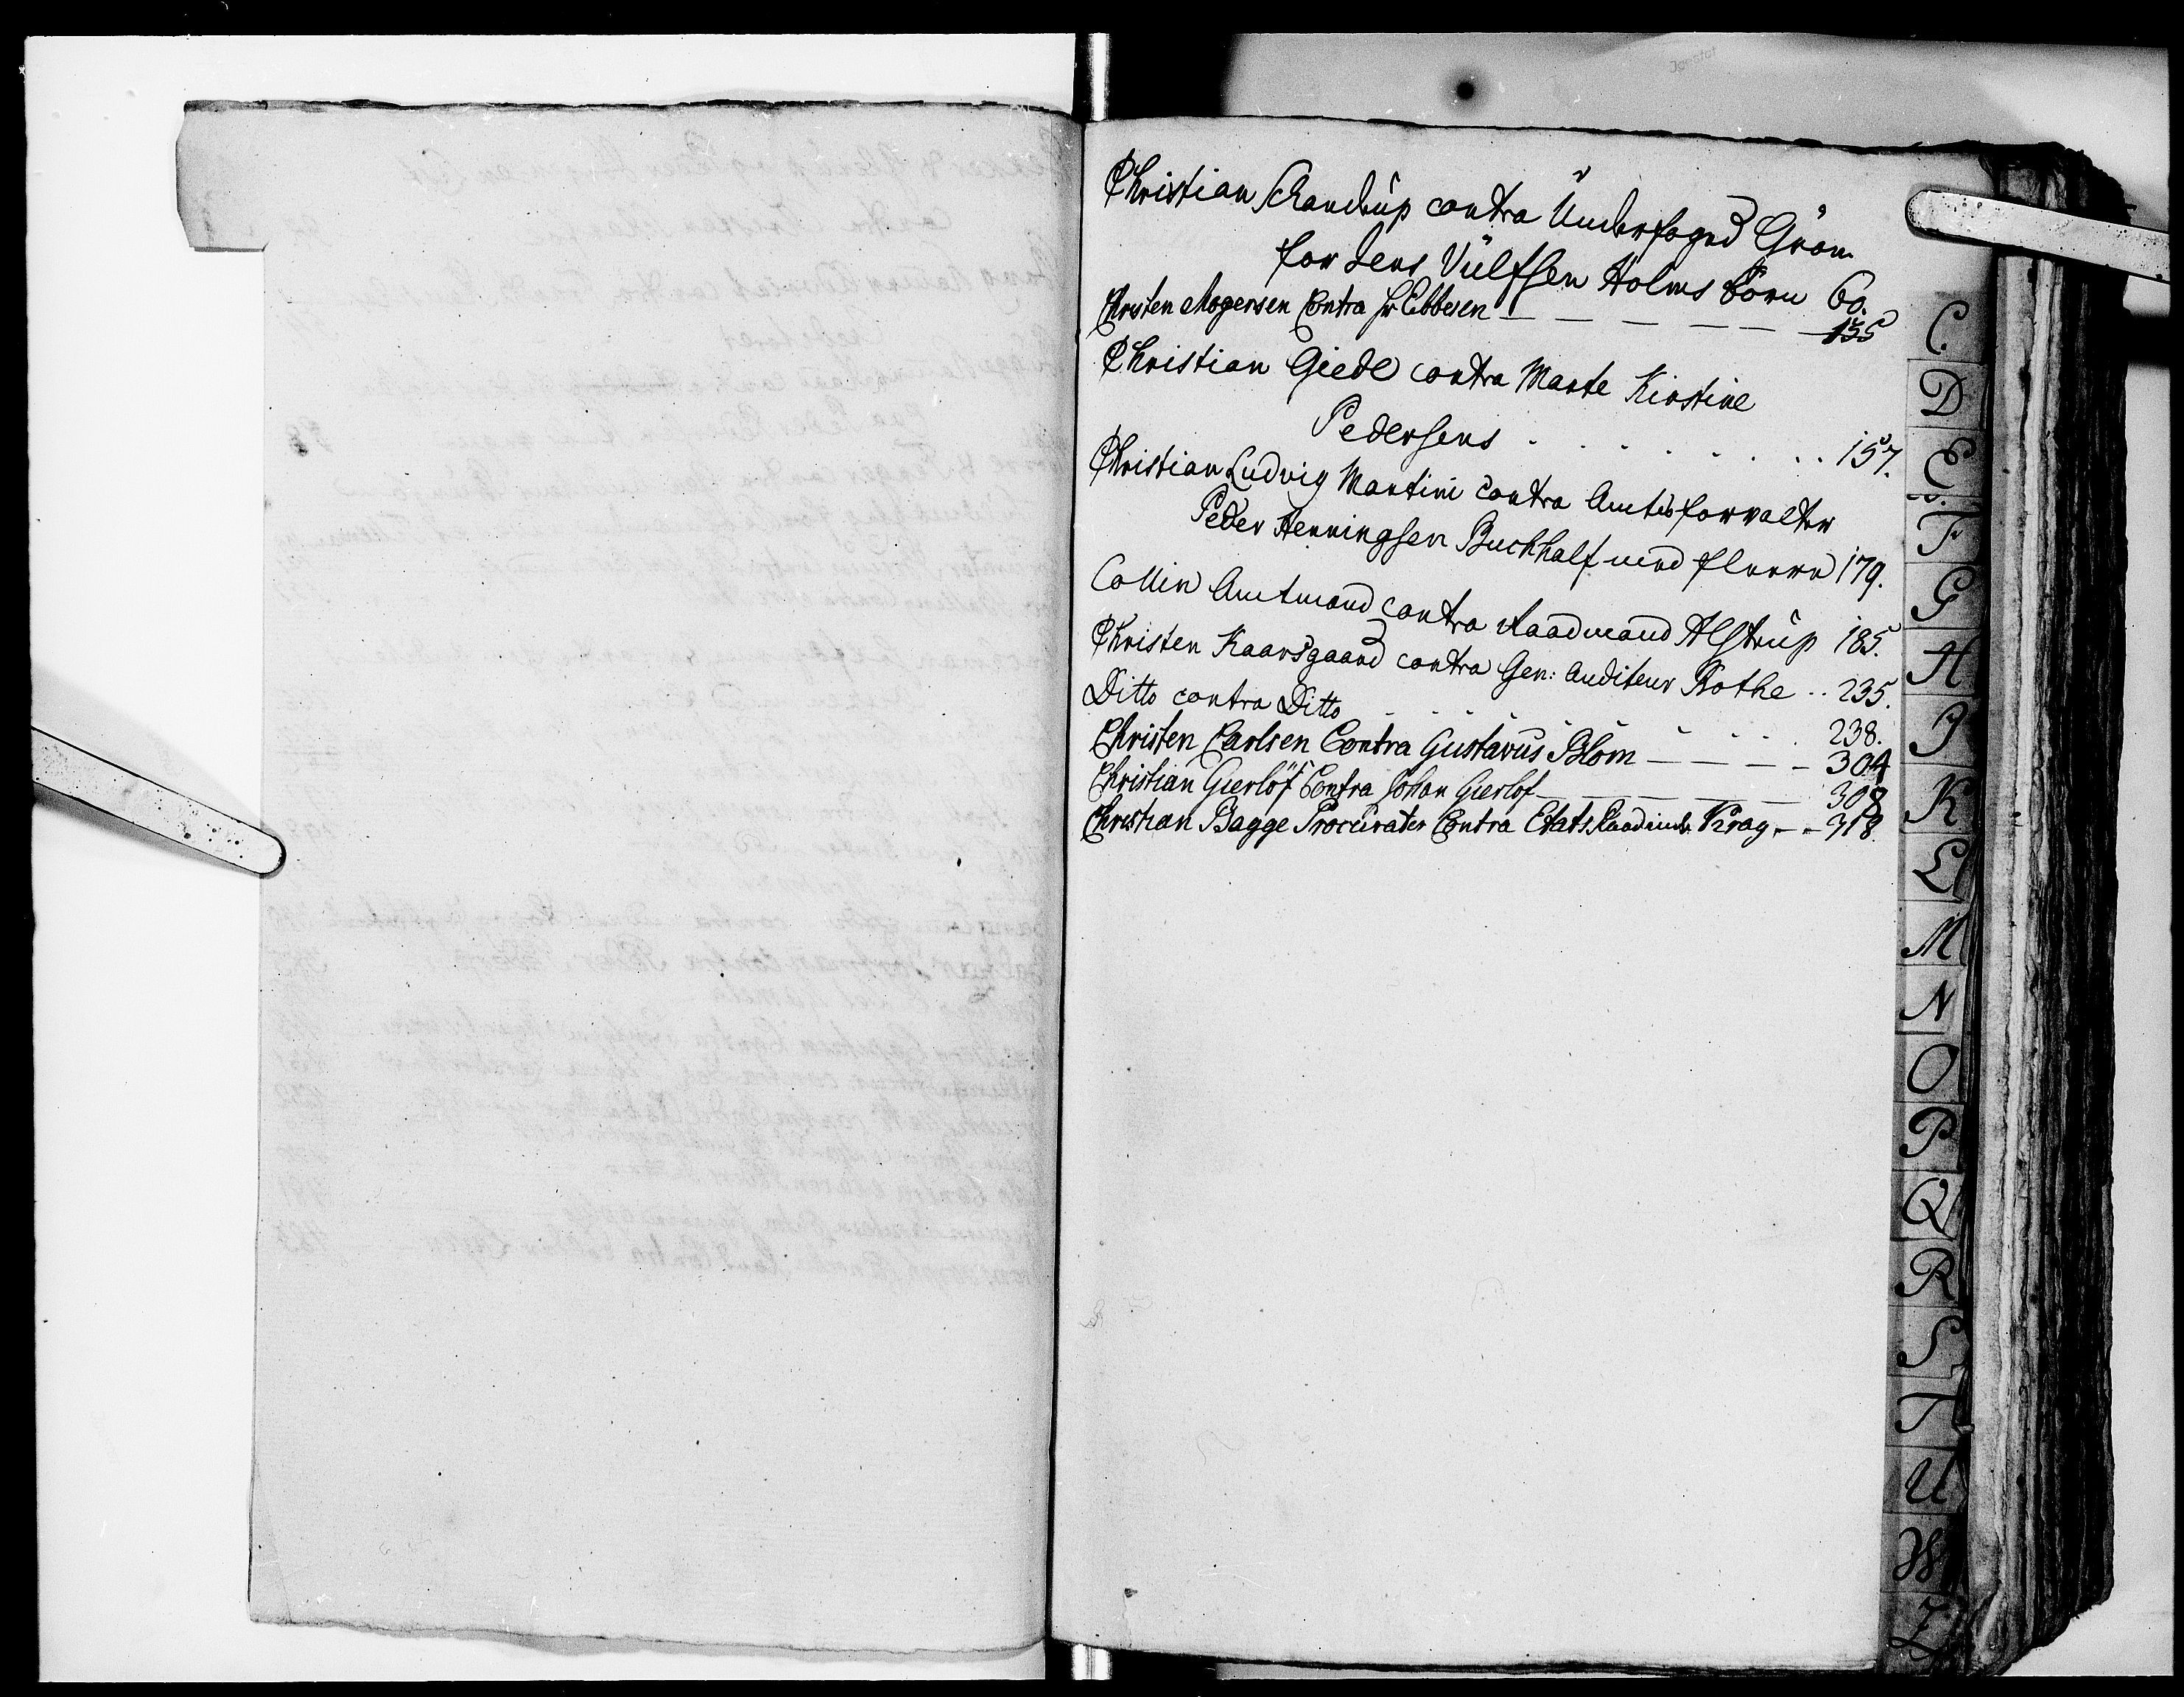 Christian Schandrup contra Underfoged Grön
for Jens Vülfsen Holms börn 60.
Christen Mogensen Contra Hr Ebbesen 155
Christian Giede contra Marte Kirstine
Pedersens 157.
Christian Ludvig Martini contra Amtsforvalter
Peder Henningsen Buchhalf med fleere 179.
Collin Amtmand contra Raadmand Alstrup 185.
Christen Kaarsgaard contra Gen: Auditeur Rothe 235.
Ditto contra Ditto 238.
Christen Carlsen Contra Gustavus Blom 304
Christian Gierlöf Contra Johan Gierlof 308
Christian Bagge Procurater Contra Etats Raadinde Krag 318.
C.
D
E
F
G
H
J
K
L
M
N
O
P
Q
R
S
T
U
W
Z